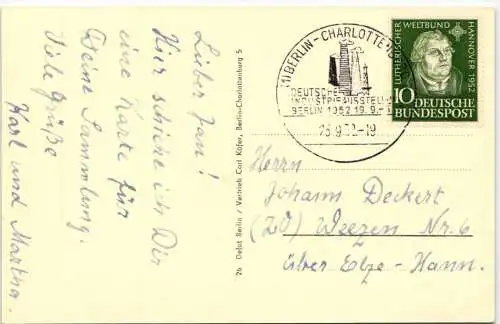 Lieber Jan!
Hier schicke ich Dir
eine Karte für
Deine Sammlung.
Viele Grüße
Karl und Martha
26 Defot Berlin / Vertrieb Carl Köfer, Berlin-Charlottenburg 5
BERLIN-CHARLOTTENB
DEUTSCHE
INDUSTRIEAUSSTELL
BERLIN 1952 19.9.-
23.9.52-19
LUTHERISCHER WELTBUND
HANNOVER 1952
10 DEUTSCHE
BUNDESPOST
Herrn
Johann Deckert
Weezen Nr. 6
über Elze-Hann.